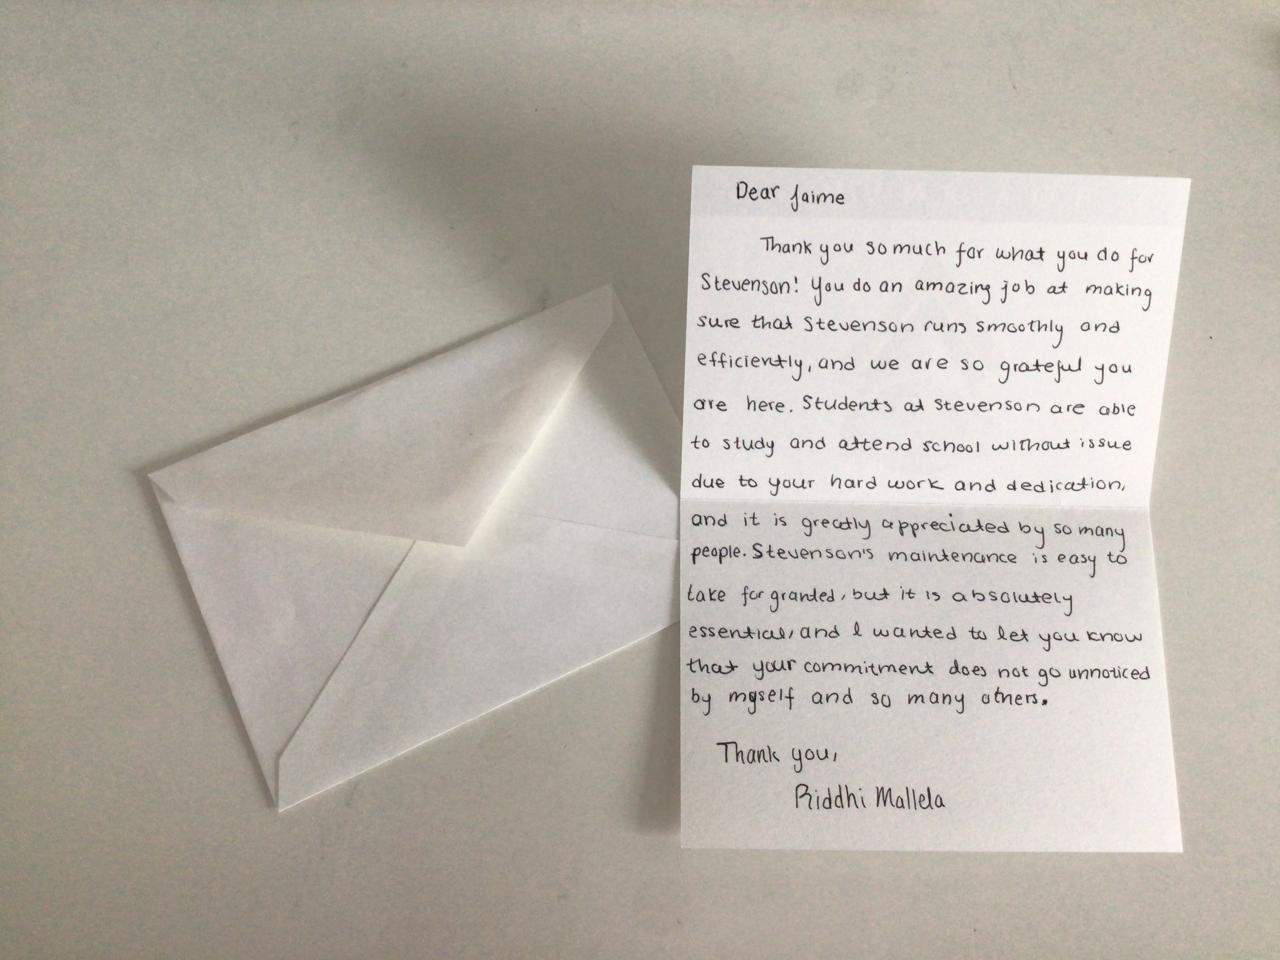 Dear Jaime
Thank you so much for what you do for
Stevenson! You do an amazing job at making
sure that Stevenson runs smoothly and
efficiently, and we are so grateful you
are here. Students at Stevenson are able
to study and attend school without issue
due to your hard work and dedication,
and it is greatly appreciated by so many
people. Stevenson's maintenance is easy to
take for granted, but it is absolutely
essential, and I wanted to let you know
that your commitment does not go unnoticed
by myself and so many others.
Thank you,
Riddhi Mallela